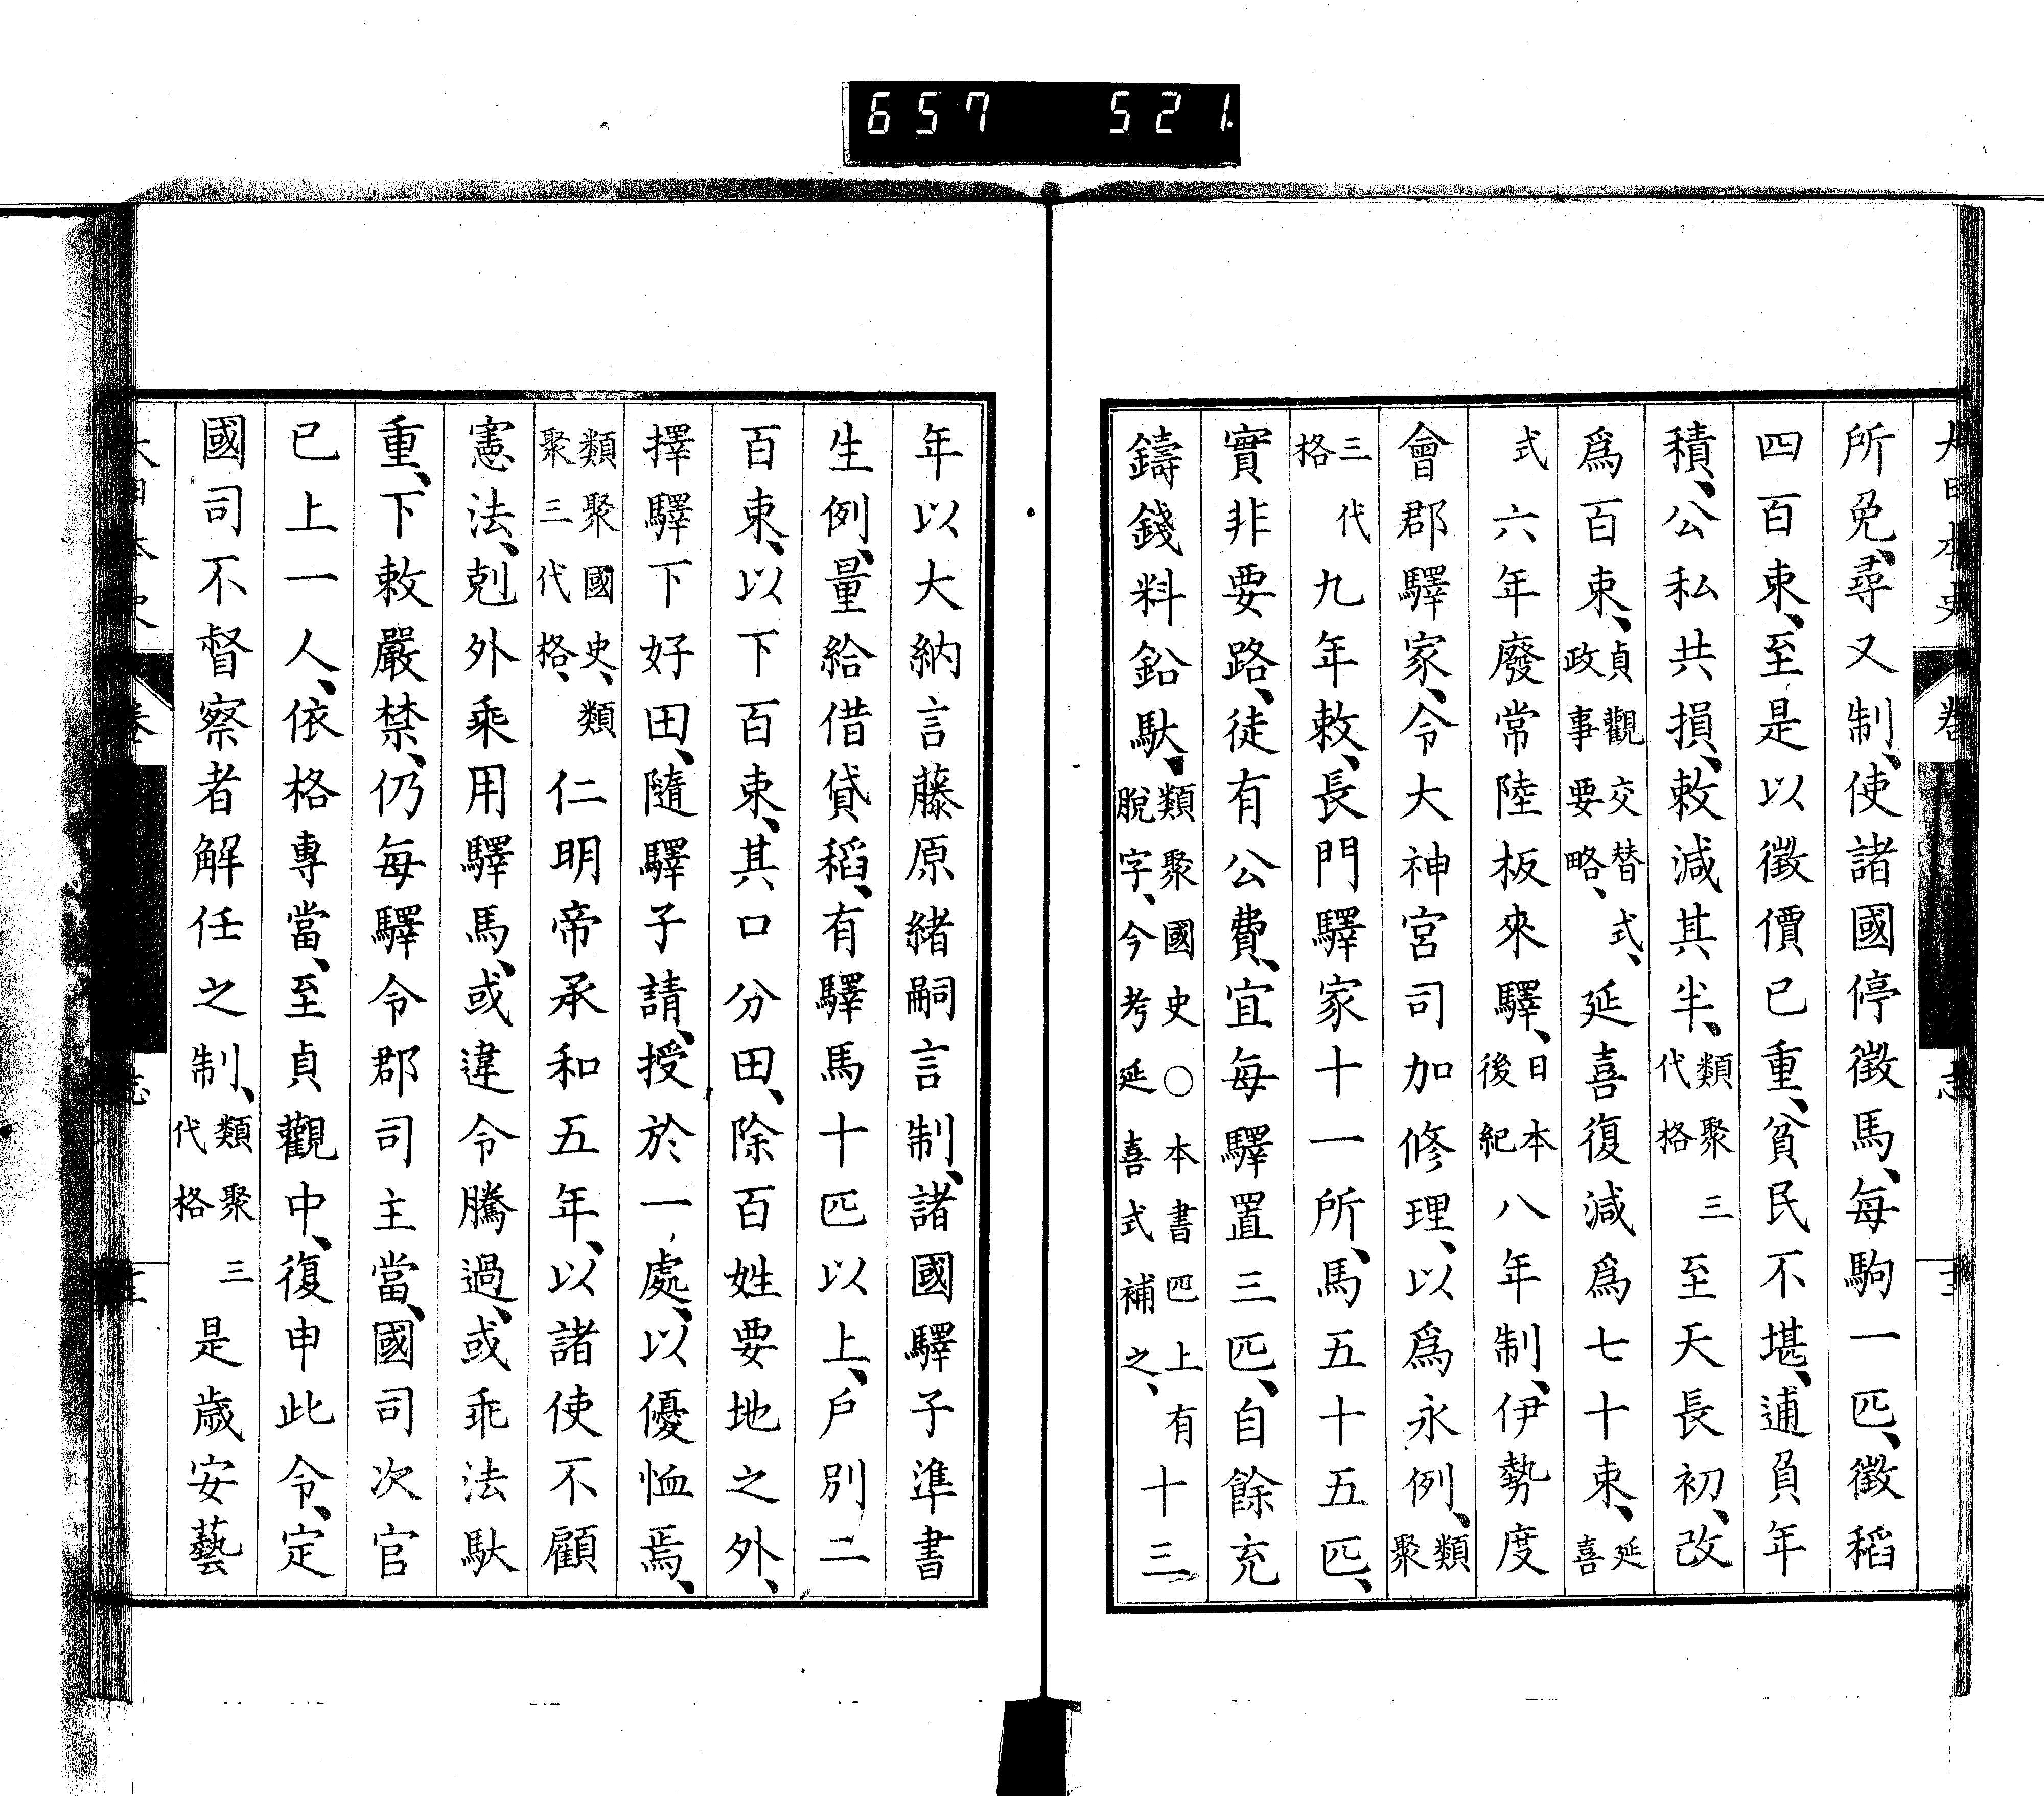 657 521
大日本史 卷 志
所免、尋又制、使諸國停徵馬、每駒一匹、徵稻
四百束、至是以徵價已重、貧民不堪、逋負年
積、公私共損、敕減其半、類聚三代格至天長初、改
爲百束、貞觀交替式、政事要略、延喜復減爲七十束、延喜
式六年廢常陸板來驛、日本後紀八年制、伊勢度
會郡驛家、令大神宮司加修理、以爲永例、類聚
三代格九年敕、長門驛家十一所、馬五十五匹、
實非要路、徒有公費、宜每驛置三匹、自餘充
鑄錢料鉛馱、類聚國史○本書匹上有十三脫字、今考延喜式補之、
年以大納言藤原緒嗣言制、諸國驛子準書
生例、量給借貸稻、有驛馬十匹以上、戶別二
百束、以下百束、其口分田、除百姓要地之外、
擇驛下好田、隨驛子請、授於一處、以優恤焉、
類聚國史、類聚三代格、仁明帝承和五年、以諸使不顧
憲法、剋外乘用驛馬、或違令騰過、或乖法馱
重、下敕嚴禁、仍每驛令郡司主當、國司次官
已上一人、依格專當、至貞觀中、復申此令、定
國司不督察者解任之制、類聚三代格是歲安藝
大日本史 卷 志